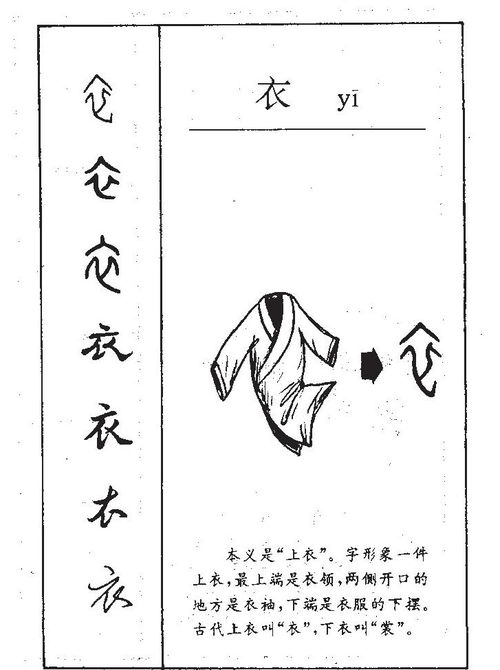 衣 yī
衣
衣
衣
衣
衣
衣
衣
本义是“上衣”。字形象一件
上衣,最上端是衣领,两侧开口的
地方是衣袖,下端是衣服的下摆。
古代上衣叫“衣”,下衣叫“裳”。